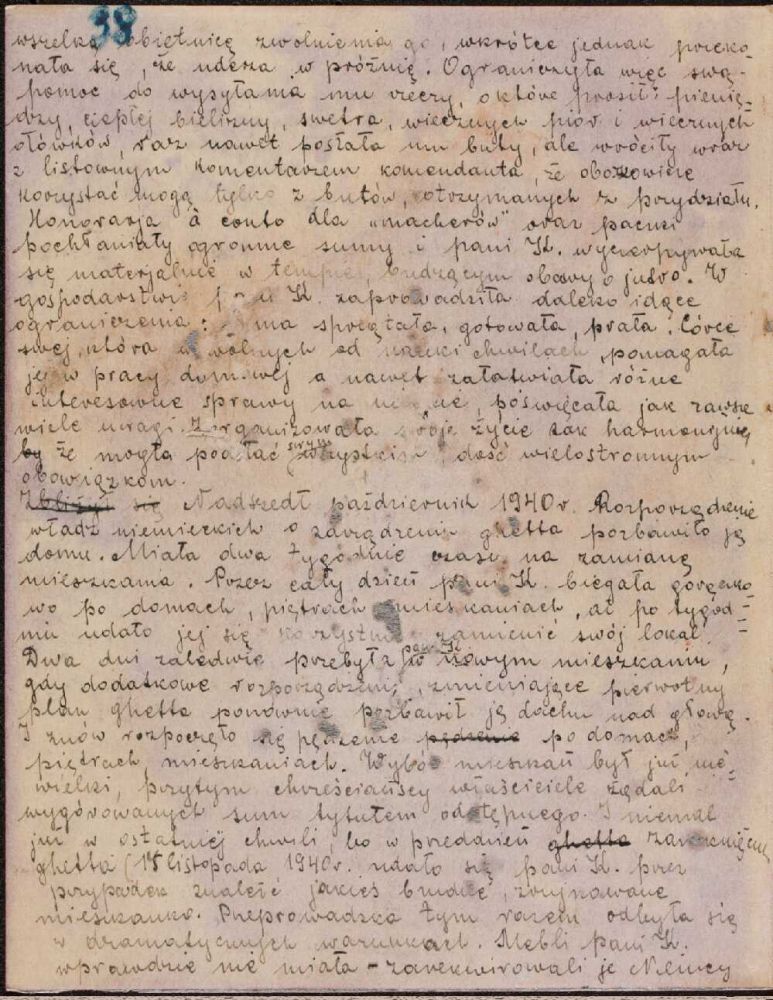 38
wszelką obietnicę zwolnienia go, wkrótce jednak przeko-
nała się, że uderza w próżnię. Ograniczyła więc swą
pomoc do wysyłania mu rzeczy, o które prosił: pienię-
dzy, ciepłej bielizny, swetra, wiecznych piór i wiecznych
ołówków, raz nawet posłała mu buty, ale wróciły wraz
z listownym komentarzem komendanta, że obozowicze
korzystać mogą tylko z butów, otrzymanych z przydziału.
Honorarja à conto dla „macherów" oraz paczki
pochłaniały ogromne sumy i pani K. wyczerpywała
się materjalnie w tempie, budzącym obawy o jutro. W
gospodarstwie K. zaprowadziła daleko idące
ograniczenia: sprzątała, gotowała, prała. Córce
swej, która w wolnych od nauki chwilach, pomagała
jej w pracy domowej a nawet załatwiała różne
interesowne sprawy na poświęcała jak zawsze
wiele uwagi. Zorganizowała swoje życie tak harmonijnie,
by że mogła podołać wszystkim swym, dość wielostronnym
obowiązkom.
Zbliżył się Nadszedł październik 1940 r. Rozporządzenie
władz niemieckich o zarządzeniu ghetta pozbawiło ją
domu. Miała dwa tygodnie czasu na zamianę
mieszkania. Przez cały dzień pani K. biegała gorączko-
wo po domach, piętrach mieszkaniach, aż po tygod-
niu udało jej się korzystnie zamienić swój lokal.
Dwa dni zaledwie przebyła pani K. w nowym mieszkaniu,
gdy dodatkowe rozporządzenie, zmieniające pierwotny
plan ghetta ponownie pozbawił ją dachu nad głową.
I znów rozpoczęło się pędzenie pędzenie po domach,
piętrach, mieszkaniach. Wybór mieszkań był już nie-
wielki, przytym chrześciańscy właściciele żądali
wygórowanych sum tytułem odstępnego. I niemal
już w ostatniej chwili, bo w przeddzień ghetta zamknięcia
ghetta (15 listopada 1940 r. udało się pani K. przez
przypadek znaleźć jakieś brudne, zrujnowane
mieszkanko. Przeprowadzka tym razem odbyła się
w dramatycznych warunkach. Mebli pani K.
wprawdzie nie miała – zarekwirowali je Niemcy